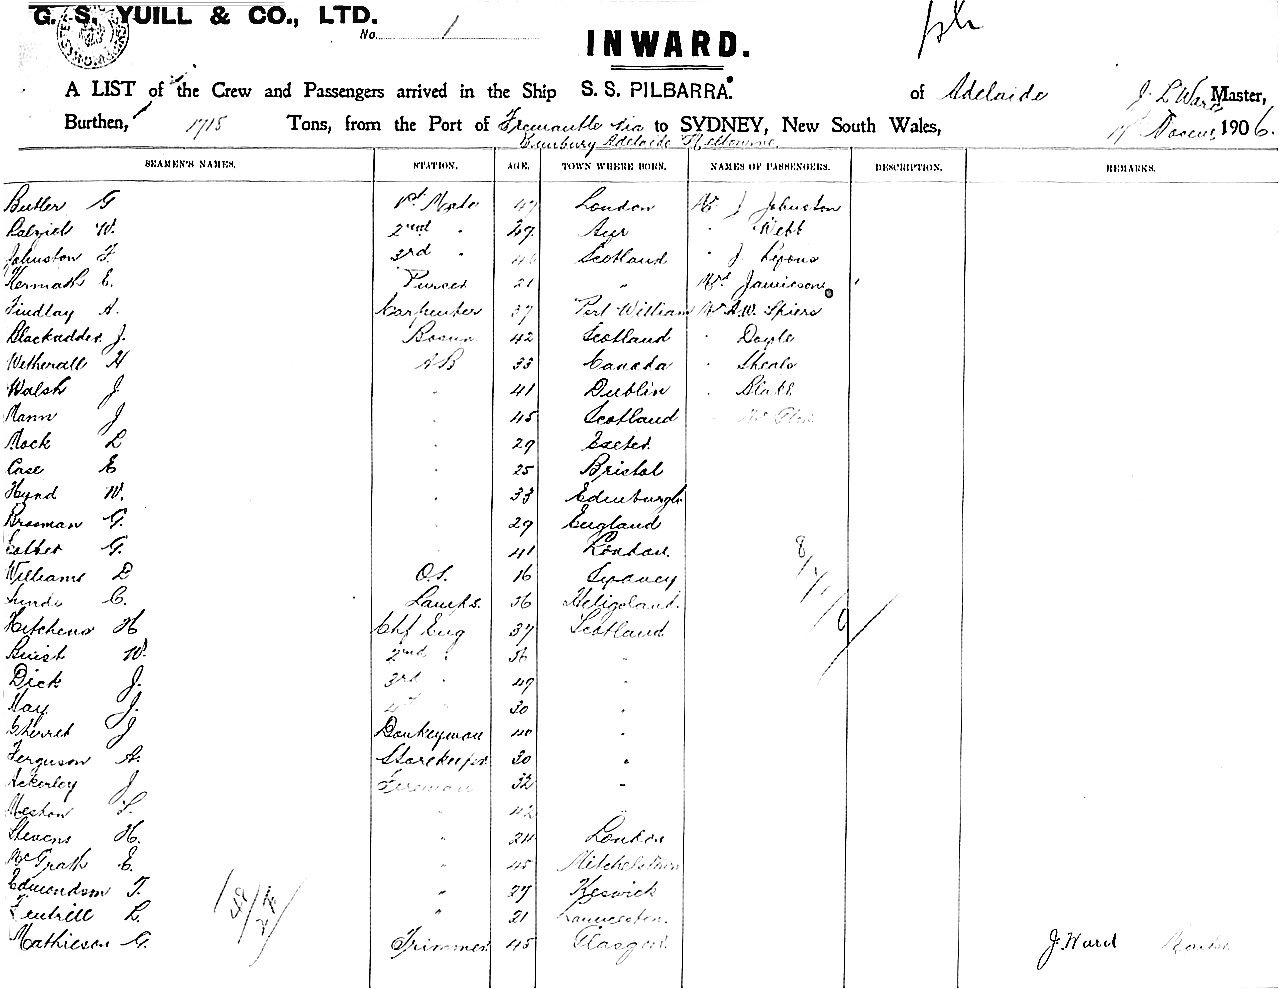 G. S. YUILL & CO., LTD.
No. 1
INWARD.
A LIST of the Crew and Passengers arrived in the Ship S. S. PILBARRA. of Adelaide J L Ward Master,
Burthen, 1715 Tons, from the Port of Fremantle via to SYDNEY, New South Wales, 1906.
Bunbury Adelaide Melbourne
SEAMEN'S NAMES. STATION. AGE. TOWN WHERE BORN. NAMES OF PASSENGERS. DESCRIPTION. REMARKS.
Butler G 1st Mate 47 London Mr J Johnston
Dalziel W. 2nd " 29 Ayr " Webb
Johnston F. 3rd " Scotland " J Lyons
E. Purser 21 " Mrs Jamieson
Findlay A. Carpenter 37 Port William Mr A.W. Spiers
Blackadder J. Bosun 42 Scotland " Doyle
Wetherall H AB 33 Canada "
Walsh J " 41 Dublin "
Mann J " 45 Scotland
Mock L " 29 Exeter
Case E " 25 Bristol
Hynd W. " 33 Edinburgh
Brosman G. " 29 England
G. " 41 London
Williams D O.S. 16 Sydney
C. Lamps. 36 Heligoland.
Hitchens H Chf Eng 37 Scotland
Buist W. 2nd " 36 "
Dick J. 3rd " 49 "
May J. 4th " 30 "
Sherret J Donkeyman 40 "
Ferguson A. Storekeeper 30 "
Ackerley J Fireman 32 "
Meston " 42
Stevens H. " 24 London
McGrath E. " 45 Mitchelstown
Edmondson T. " 27 Keswick
L. " 21 Launceston.
Mathieson G. Trimmer 45 Glasgow
J. Ward Master